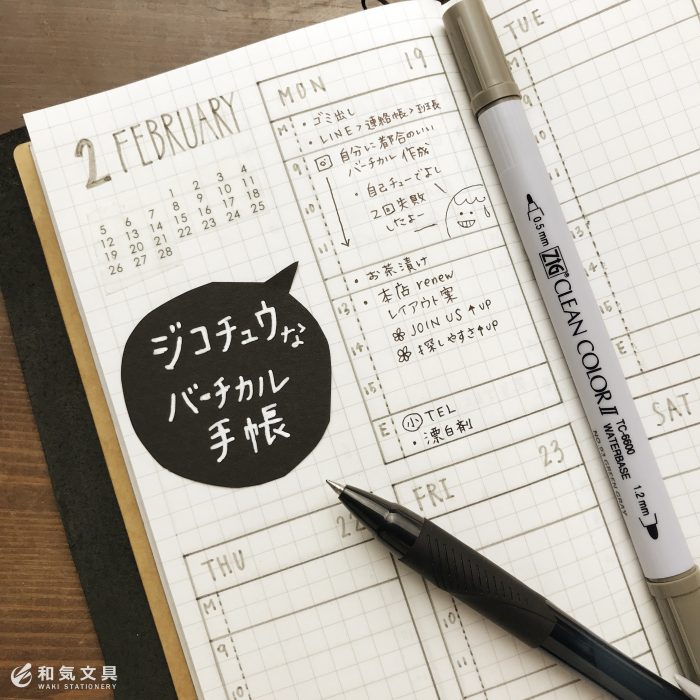 2 FEBRUARY
1 2 3 4
5 6 7 8 9 10 11
12 13 14 15 16 17 18
19 20 21 22 23 24 25
26 27 28
ジコチュウな
バーチカル
手帳
MON 19
M
・ゴミ出し
・LINE>連絡帳>班長
9
自分に都合のいい
バーチカル作成
・自己チューでよし
10
2回失敗
したよー
11
・お茶漬け
13
・本店renew
レイアウト案
14
JOIN US↑up
探しやすさ↑up
15
E
小 TEL
・漂白剤
TUE
M
9
10
11
13
14
15
E
THU 22
M
9
10
11
FRI 23
SAT
0.5 mm ZIG CLEAN COLOR II TC-6600 1.2 mm
WATERBASE
NO. 93 GREEN GRAY
和気文具
WAKI STATIONERY